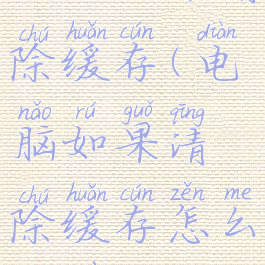 chú huǎn cún diàn
除缓存(电
nǎo rú guǒ qīng
脑如果清
chú huǎn cún zěn me
除缓存怎么